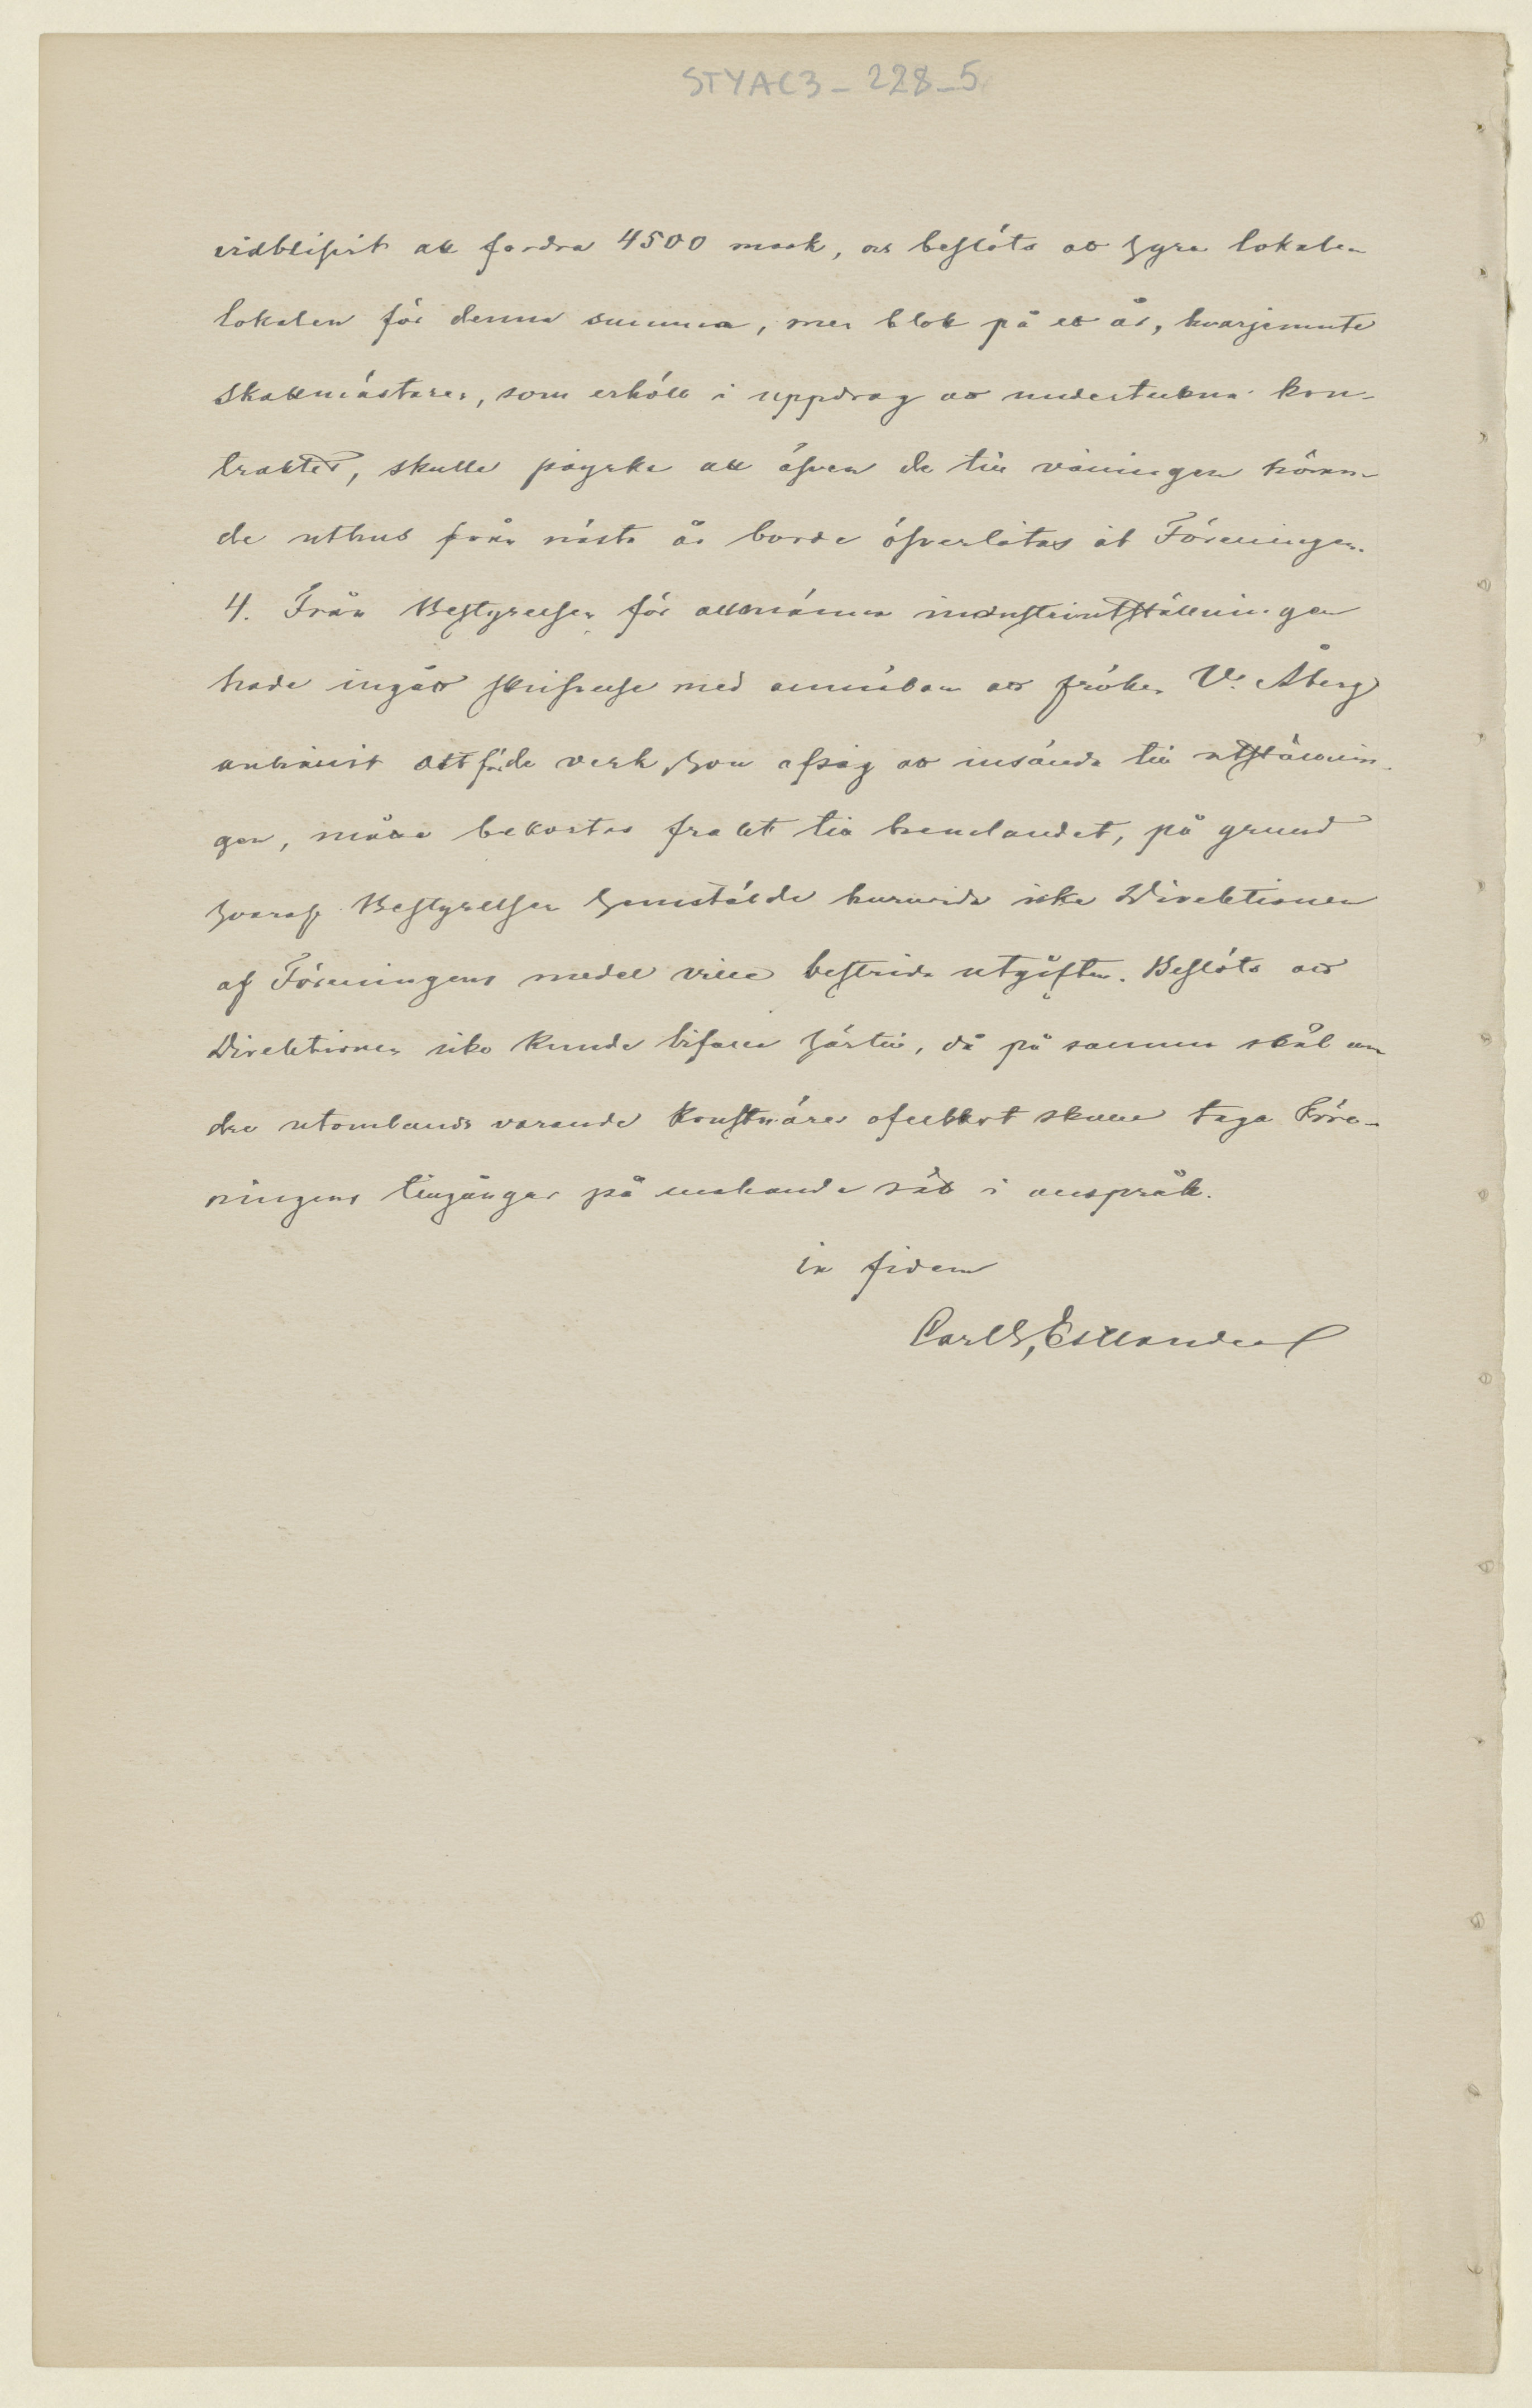 STYAC3_228_5
vidblifvit att fordra 4500 mark, och beslöts att hyra lokalen
lokalen för denna summa, men blott på ett år, hvarjemnte
skattmästaren, som erhöll i uppdrag att underteckna kon-
traktet, skulle påyrka att äfven de till våningen höran-
de uthus från nästa år borde öfverlåtas åt Föreningen.
4. Från Bestyrelsen för allmänna industriutställningen
hade ingått skrifvelse med anmälan att fröken V. Åberg
anhållit att för de verk, hon afsåg att insända till utställnin-
gen, måtte bekostas frakt till hemlandet, på grund
hvaraf Bestyrelsen hemstälde huruvida icke Direktionen
af Föreningens medel ville bestrida utgiften. Beslöts att
Direktionen icke kunde bifalla härtill, då på samma skäl an
dra utomlands varande konstnärer ofelbart skulle taga Före-
ningens tillgångar på enahanda sätt i anspråk.
in fidem
Carl G. Estlander